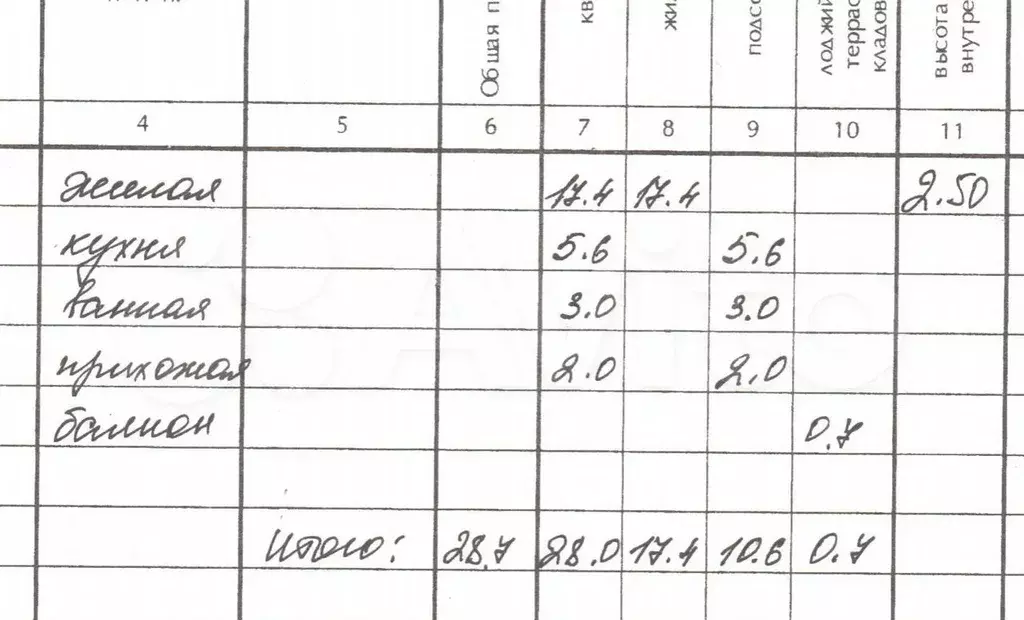 Общая п
кв
жил
подсо
лоджий
террас
кладов
высота
внутре
4 5 6 7 8 9 10 11
жилая 17.4 17.4 2.50
кухня 5.6 5.6
ванная 3.0 3.0
прихожая 2.0 2.0
балкон 0.7
Итого: 28.7 28.0 17.4 10.6 0.7
Avito